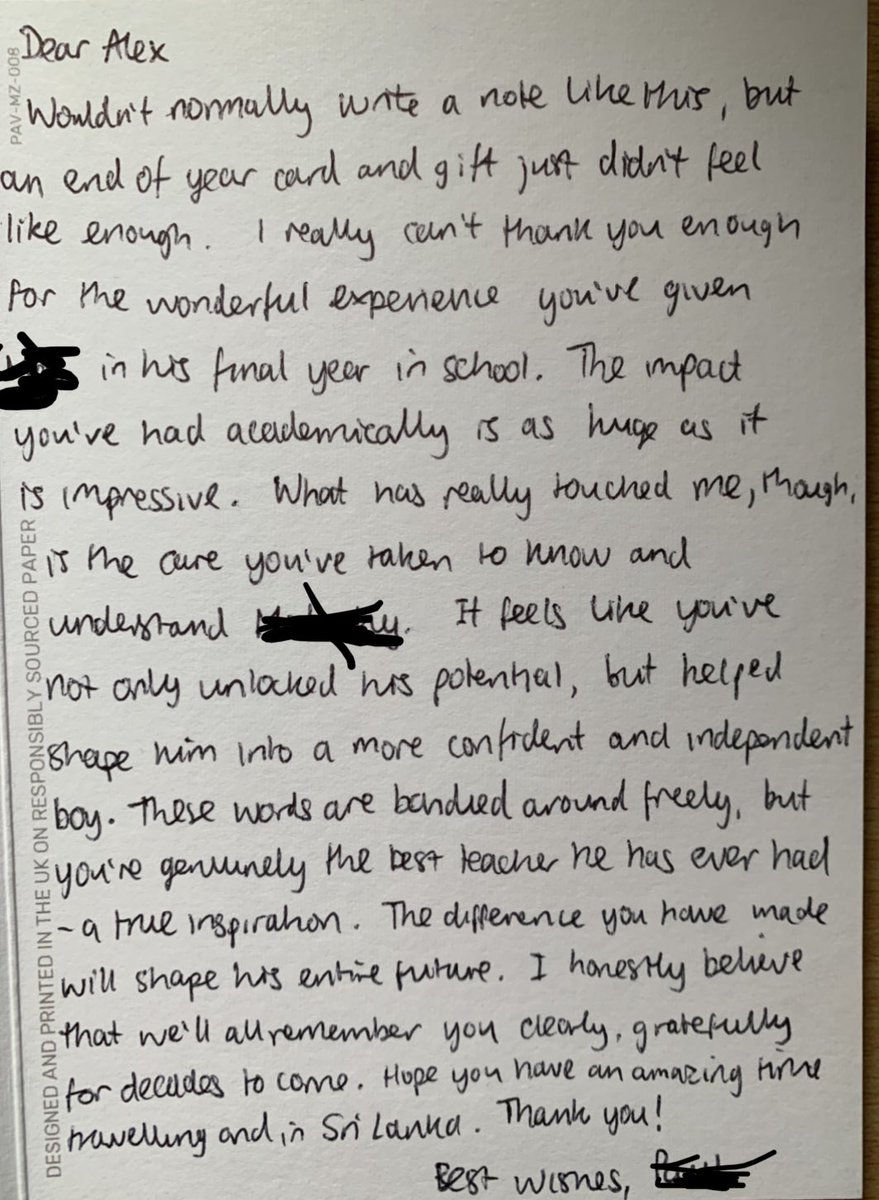 Dear Alex
Wouldn't normally write a note like this, but
an end of year card and gift just didn't feel
like enough. I really can't thank you enough
for the wonderful experience you've given
in his final year in school. The impact
you've had academically is as huge as it
is impressive. What has really touched me, though,
is the care you've taken to know and
understand . It feels like you've
not only unlocked his potential, but helped
shape him into a more confident and independent
boy. These words are bandied around freely, but
you're genuinely the best teacher he has ever had
- a true inspiration. The difference you have made
will shape his entire future. I honestly believe
that we'll all remember you clearly, gratefully
for decades to come. Hope you have an amazing time
travelling and in Sri Lanka. Thank you!
Best wishes,
PAV-MZ-008
DESIGNED AND PRINTED IN THE UK ON RESPONSIBLY SOURCED PAPER